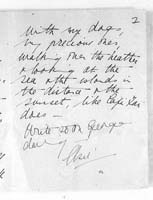 2
with my dogs,
my precious ones,
walking over the heather
& looking at the
sea & the islands in
the distance & the
sunset, like
does —
Write soon George
dear
Elsie